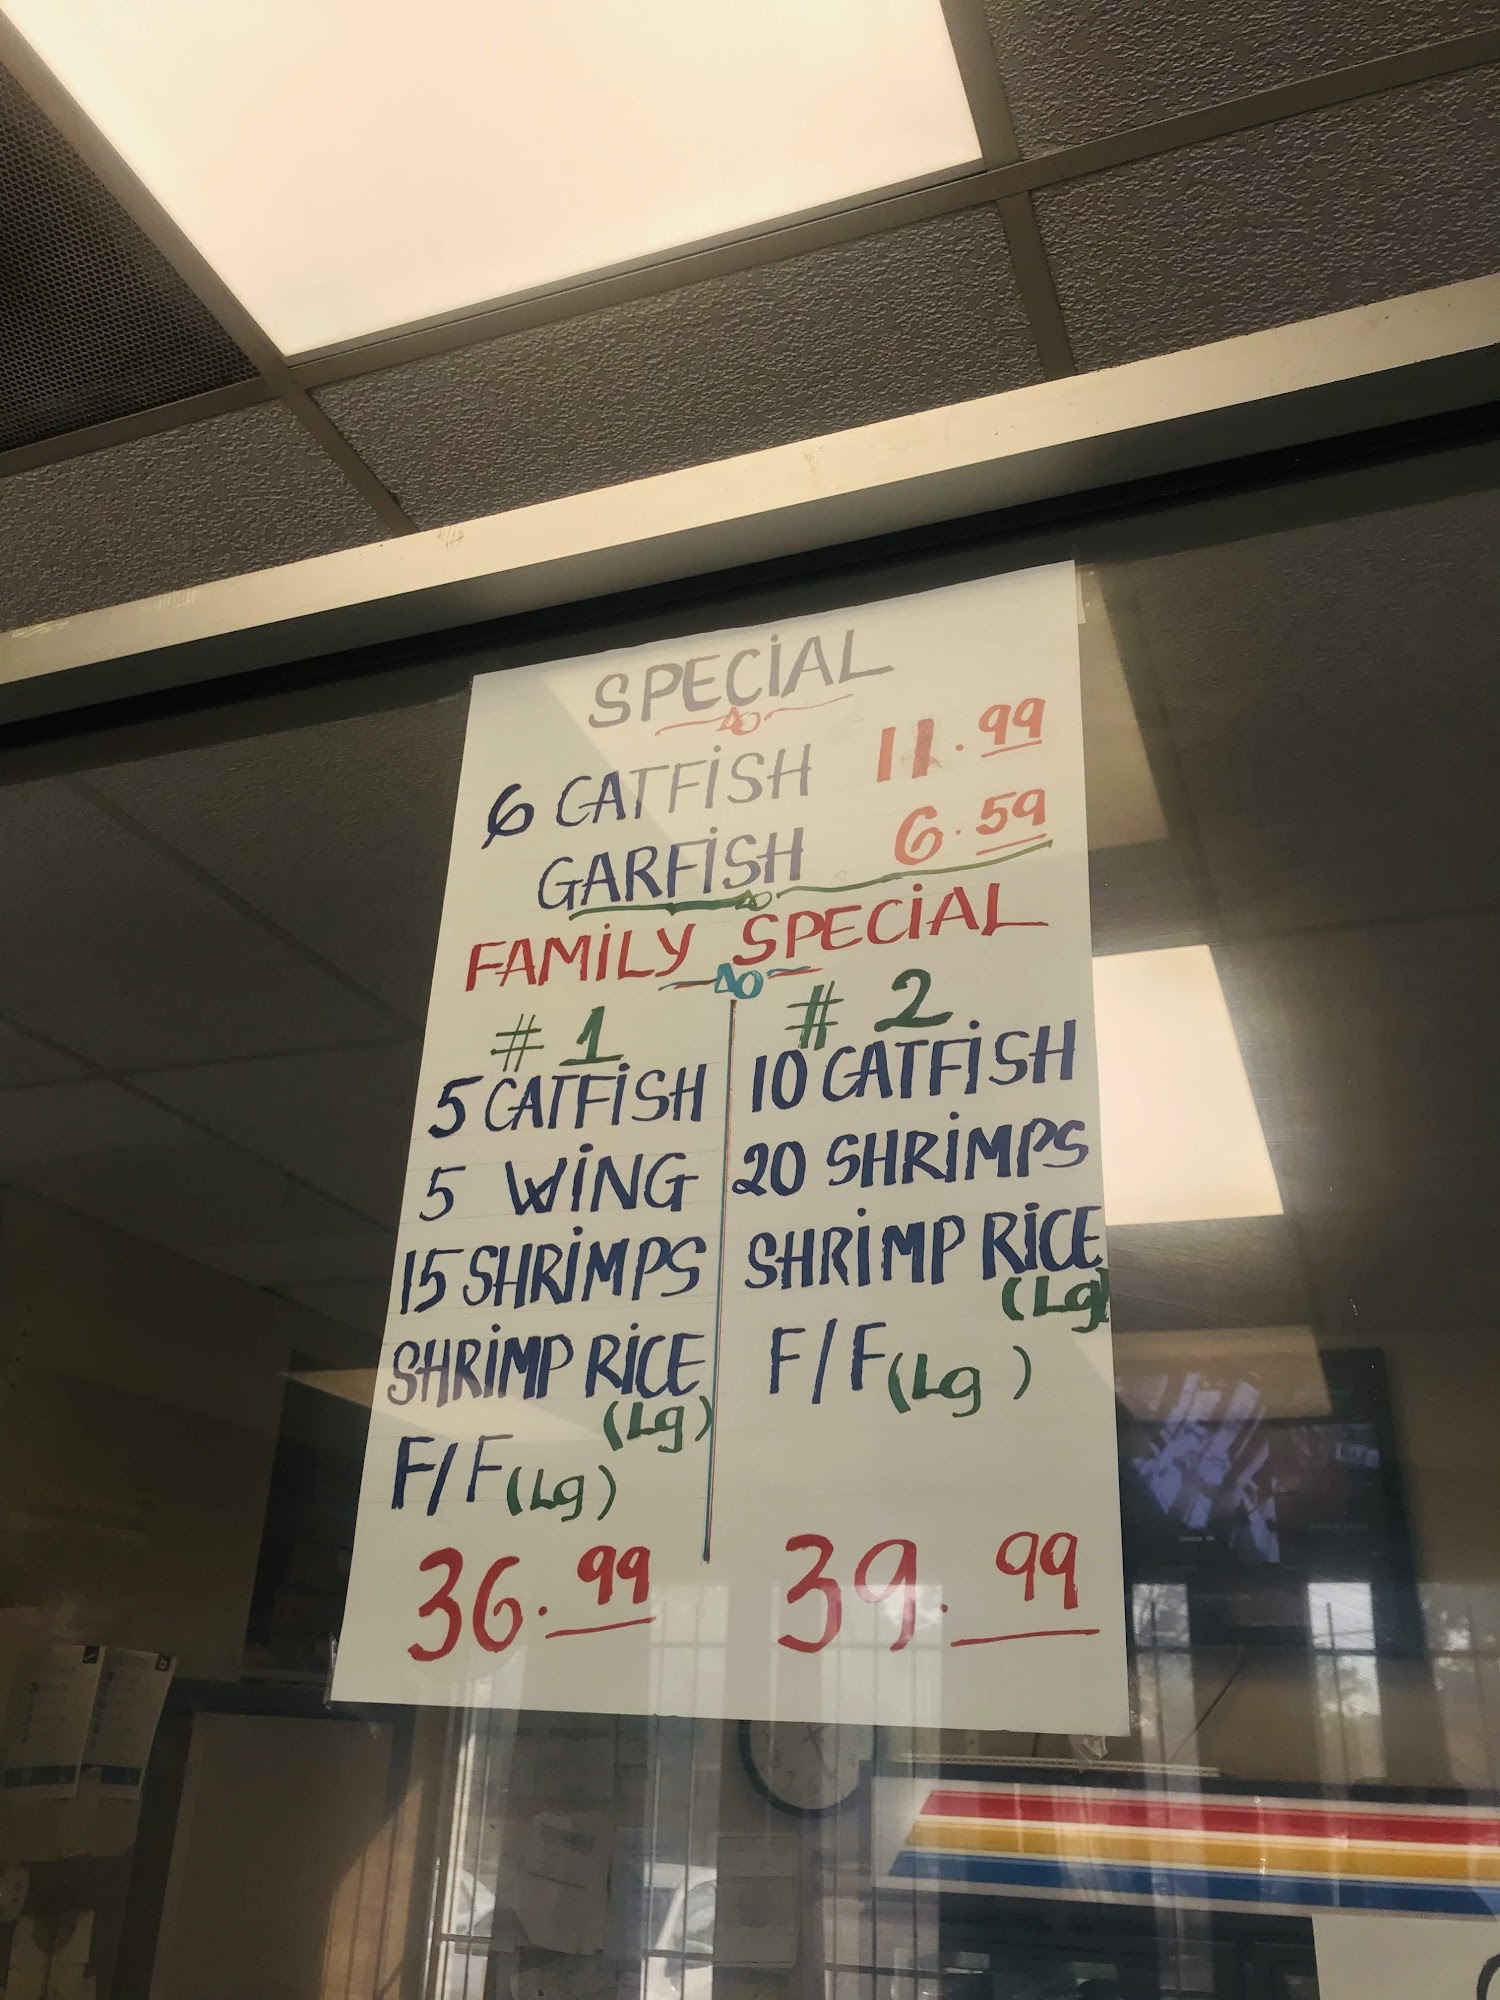 SPECIAL
6 CATFISH 11.99
GARFISH 6.59
FAMILY SPECIAL
# 1
5 CATFISH
5 WING
15 SHRIMPS
SHRIMP RICE
(Lg)
F/F (Lg)
36.99
# 2
10 CATFISH
20 SHRIMPS
SHRIMP RICE
(Lg)
F/F (Lg)
39.99